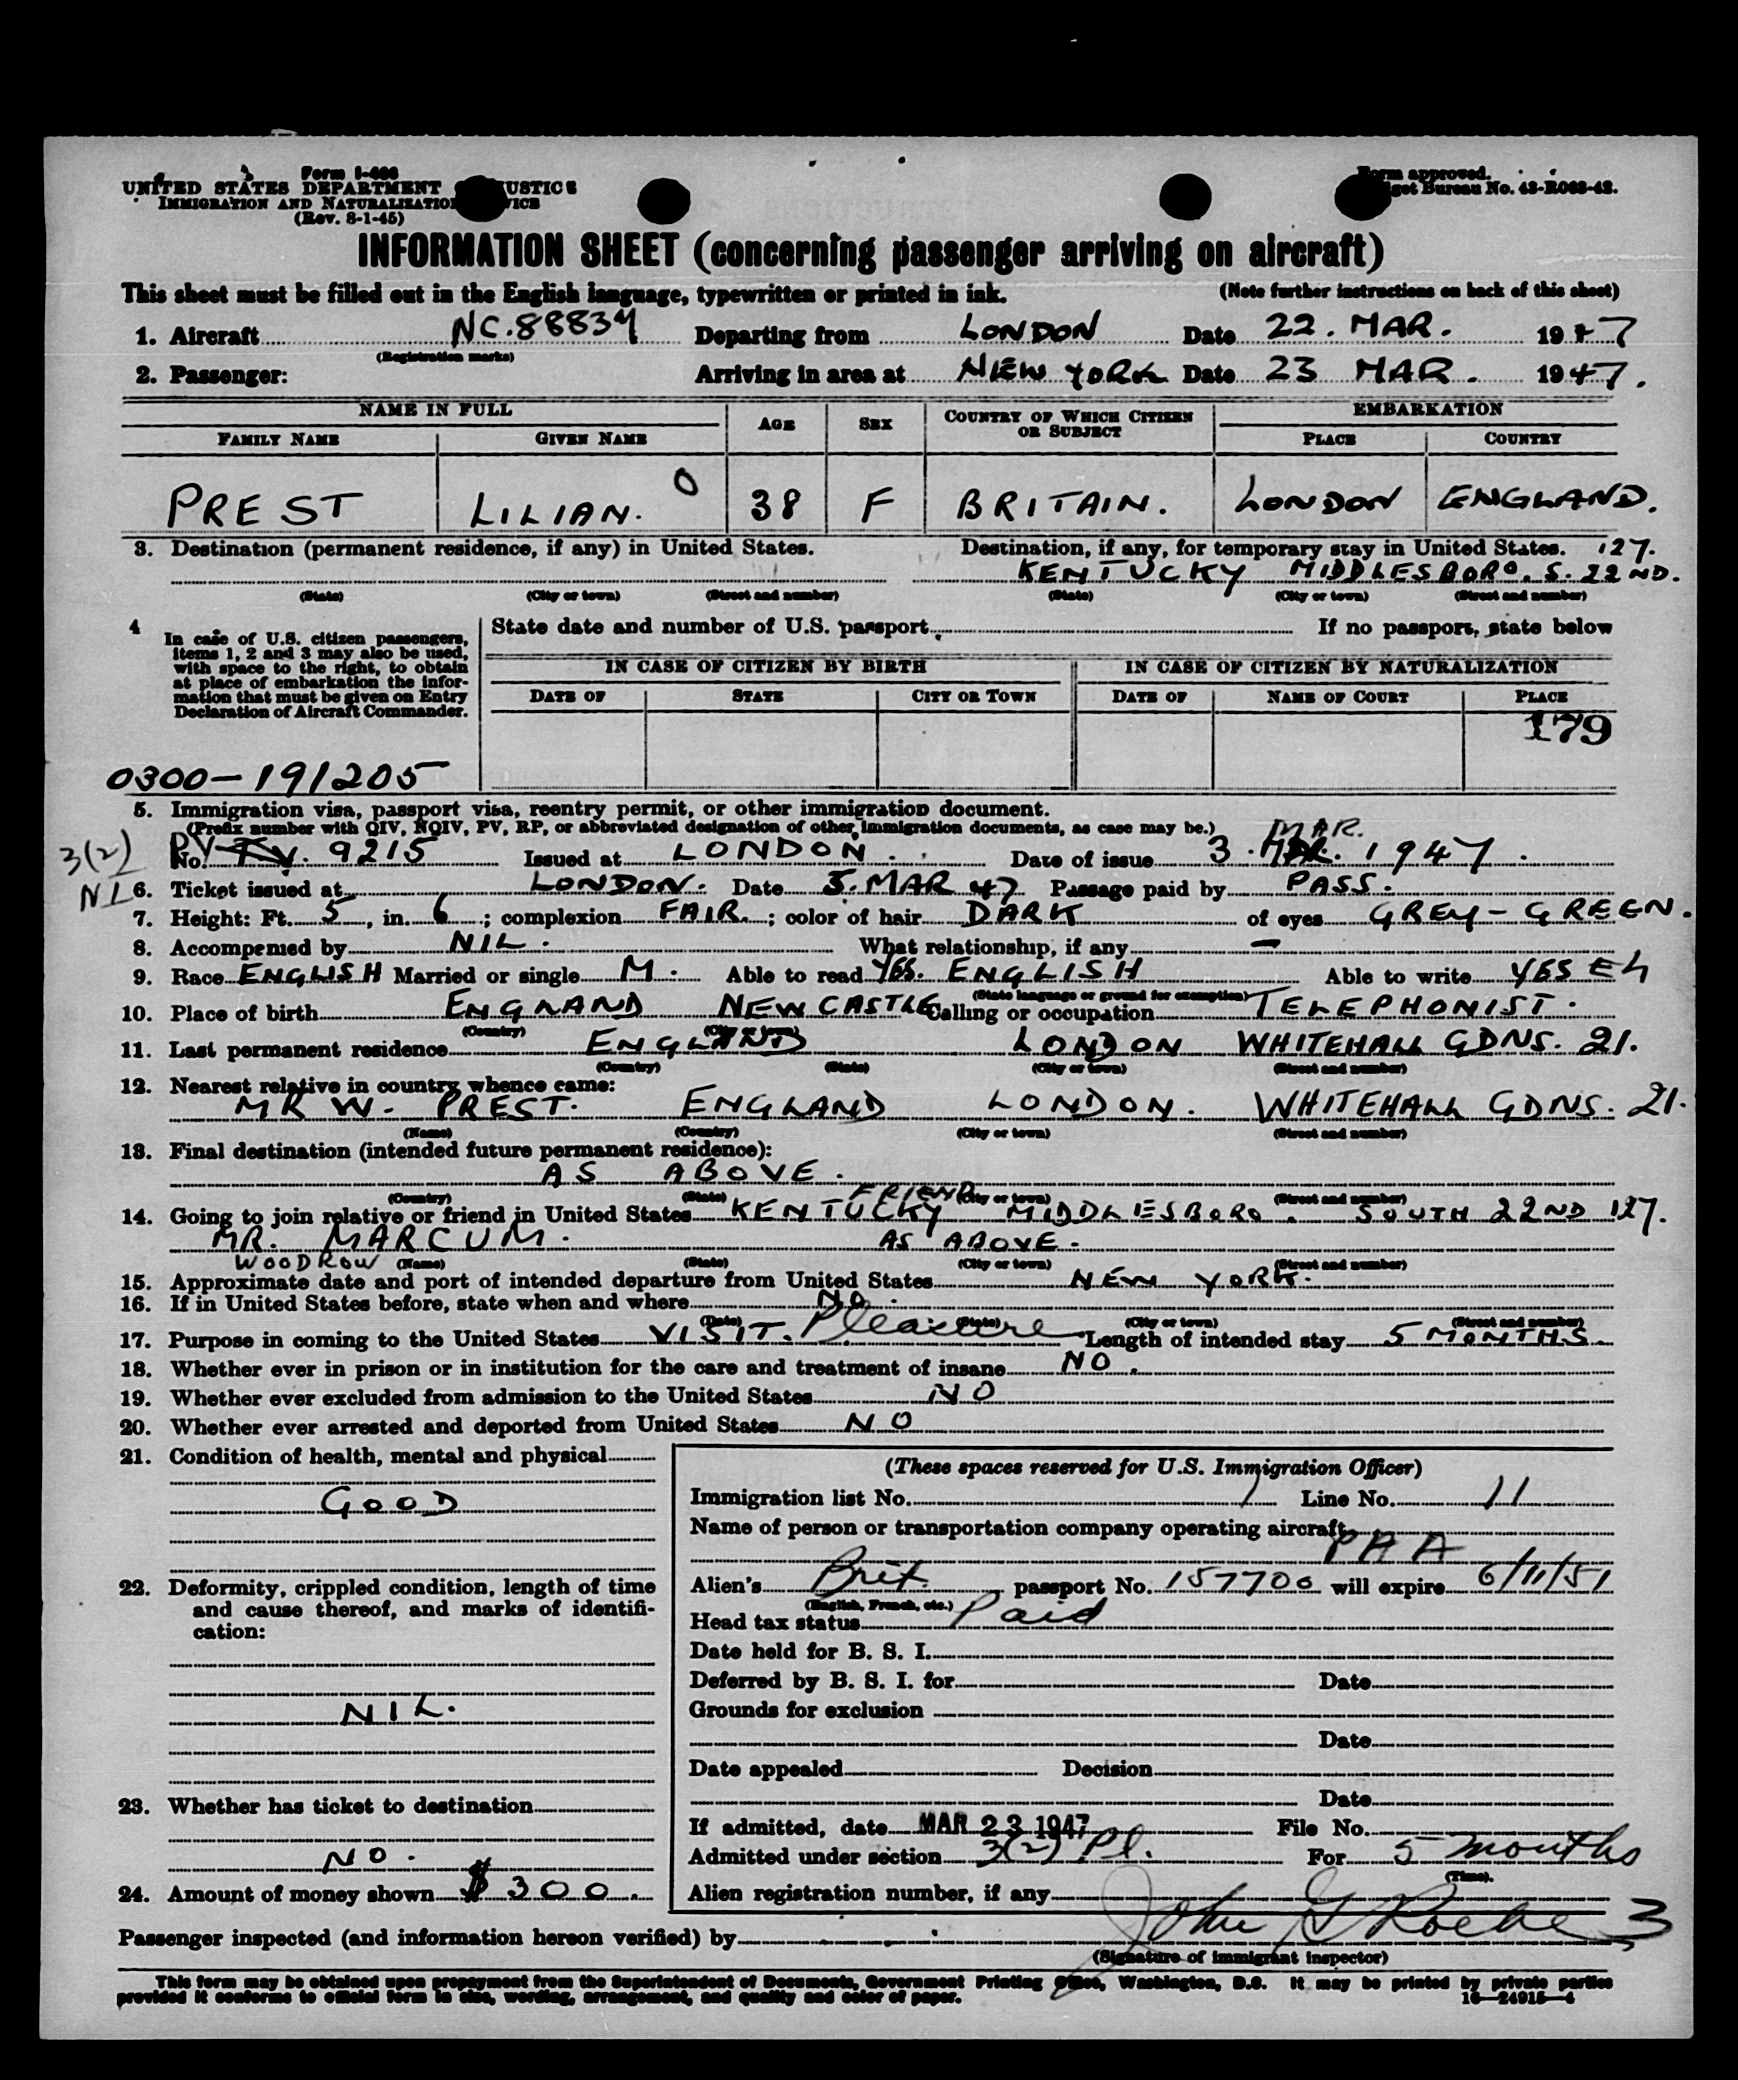 Form I-466
Form approved.
UNITED STATES DEPARTMENT JUSTICE
Budget Bureau No. 43-R063-42.
IMMIGRATION AND NATURALIZATION SERVICE
(Rev. 8-1-45)
INFORMATION SHEET (concerning passenger arriving on aircraft)
This sheet must be filled out in the English language, typewritten or printed in ink. (Note further instructions on back of this sheet)
1. Aircraft NC.88834 Departing from LONDON Date 22. MAR. 1947
(Registration marks)
2. Passenger: Arriving in area at NEW YORK Date 23 MAR. 1947.
NAME IN FULL AGE SEX COUNTRY OF WHICH CITIZEN OR SUBJECT EMBARKATION
FAMILY NAME GIVEN NAME PLACE COUNTRY
PREST LILIAN. O 38 F BRITAIN. LONDON ENGLAND.
3. Destination (permanent residence, if any) in United States. Destination, if any, for temporary stay in United States. 127.
KENTUCKY MIDDLESBORO. S. 22ND.
(State) (City or town) (Street and number) (State) (City or town) (Street and number)
4 In case of U.S. citizen passengers, items 1, 2 and 3 may also be used, with space to the right, to obtain at place of embarkation the information that must be given on Entry Declaration of Aircraft Commander.
State date and number of U.S. passport If no passport, state below
IN CASE OF CITIZEN BY BIRTH IN CASE OF CITIZEN BY NATURALIZATION
DATE OF STATE CITY OR TOWN DATE OF NAME OF COURT PLACE
179
0300-191205
5. Immigration visa, passport visa, reentry permit, or other immigration document.
(Prefix number with QIV, NQIV, PV, RP, or abbreviated designation of other immigration documents, as case may be.)
MAR.
3(2) No. PV 9215 Issued at LONDON. Date of issue 3. MAR. 1947.
NI 6. Ticket issued at LONDON. Date 5. MAR 47 Passage paid by PASS.
7. Height: Ft. 5, in. 6; complexion FAIR.; color of hair DARK of eyes GREY-GREEN.
8. Accompenied by NIL. What relationship, if any —
9. Race ENGLISH Married or single M. Able to read YES. ENGLISH Able to write YES
(State language or ground for exemption)
10. Place of birth ENGLAND NEWCASTLE Calling or occupation TELEPHONIST.
(Country) (City or town)
11. Last permanent residence ENGLAND LONDON WHITEHALL GDNS. 21.
(Country) (State) (City or town) (Street and number)
12. Nearest relative in country whence came:
MR W. PREST. ENGLAND LONDON. WHITEHALL GDNS. 21.
(Name) (Country) (City or town) (Street and number)
13. Final destination (intended future permanent residence):
AS ABOVE.
(Country) (State) (City or town) (Street and number)
FRIEND
14. Going to join relative or friend in United States KENTUCKY MIDDLESBORO. SOUTH 22ND 127.
MR. MARCUM. AS ABOVE.
WOODROW (Name) (State) (City or town) (Street and number)
15. Approximate date and port of intended departure from United States NEW YORK.
16. If in United States before, state when and where NO.
(Date) (State) (City or town) (Street and number)
17. Purpose in coming to the United States VISIT. Pleasure Length of intended stay 5 MONTHS.
18. Whether ever in prison or in institution for the care and treatment of insane NO.
19. Whether ever excluded from admission to the United States NO
20. Whether ever arrested and deported from United States NO
21. Condition of health, mental and physical
GOOD
22. Deformity, crippled condition, length of time
and cause thereof, and marks of identifi-
cation:
NIL.
23. Whether has ticket to destination
NO.
24. Amount of money shown $300.
(These spaces reserved for U.S. Immigration Officer)
Immigration list No. 1 Line No. 11
Name of person or transportation company operating aircraft
PAA
Alien's Brit. passport No. 157700 will expire 6/11/51
(English, French, etc.)
Head tax status Paid
Date held for B. S. I.
Deferred by B. S. I. for Date
Grounds for exclusion
Date
Date appealed Decision
Date
If admitted, date MAR 23 1947 File No.
Admitted under section 3(2) Pl. For 5 months
(Time).
Alien registration number, if any
Passenger inspected (and information hereon verified) by John G Roche 3
(Signature of immigrant inspector)
This form may be obtained upon prepayment from the Superintendent of Documents, Government Printing Office, Washington, D.C. It may be printed by private parties
provided it conforms to official form in size, wording, arrangement, and quality and color of paper. 16—24915-4